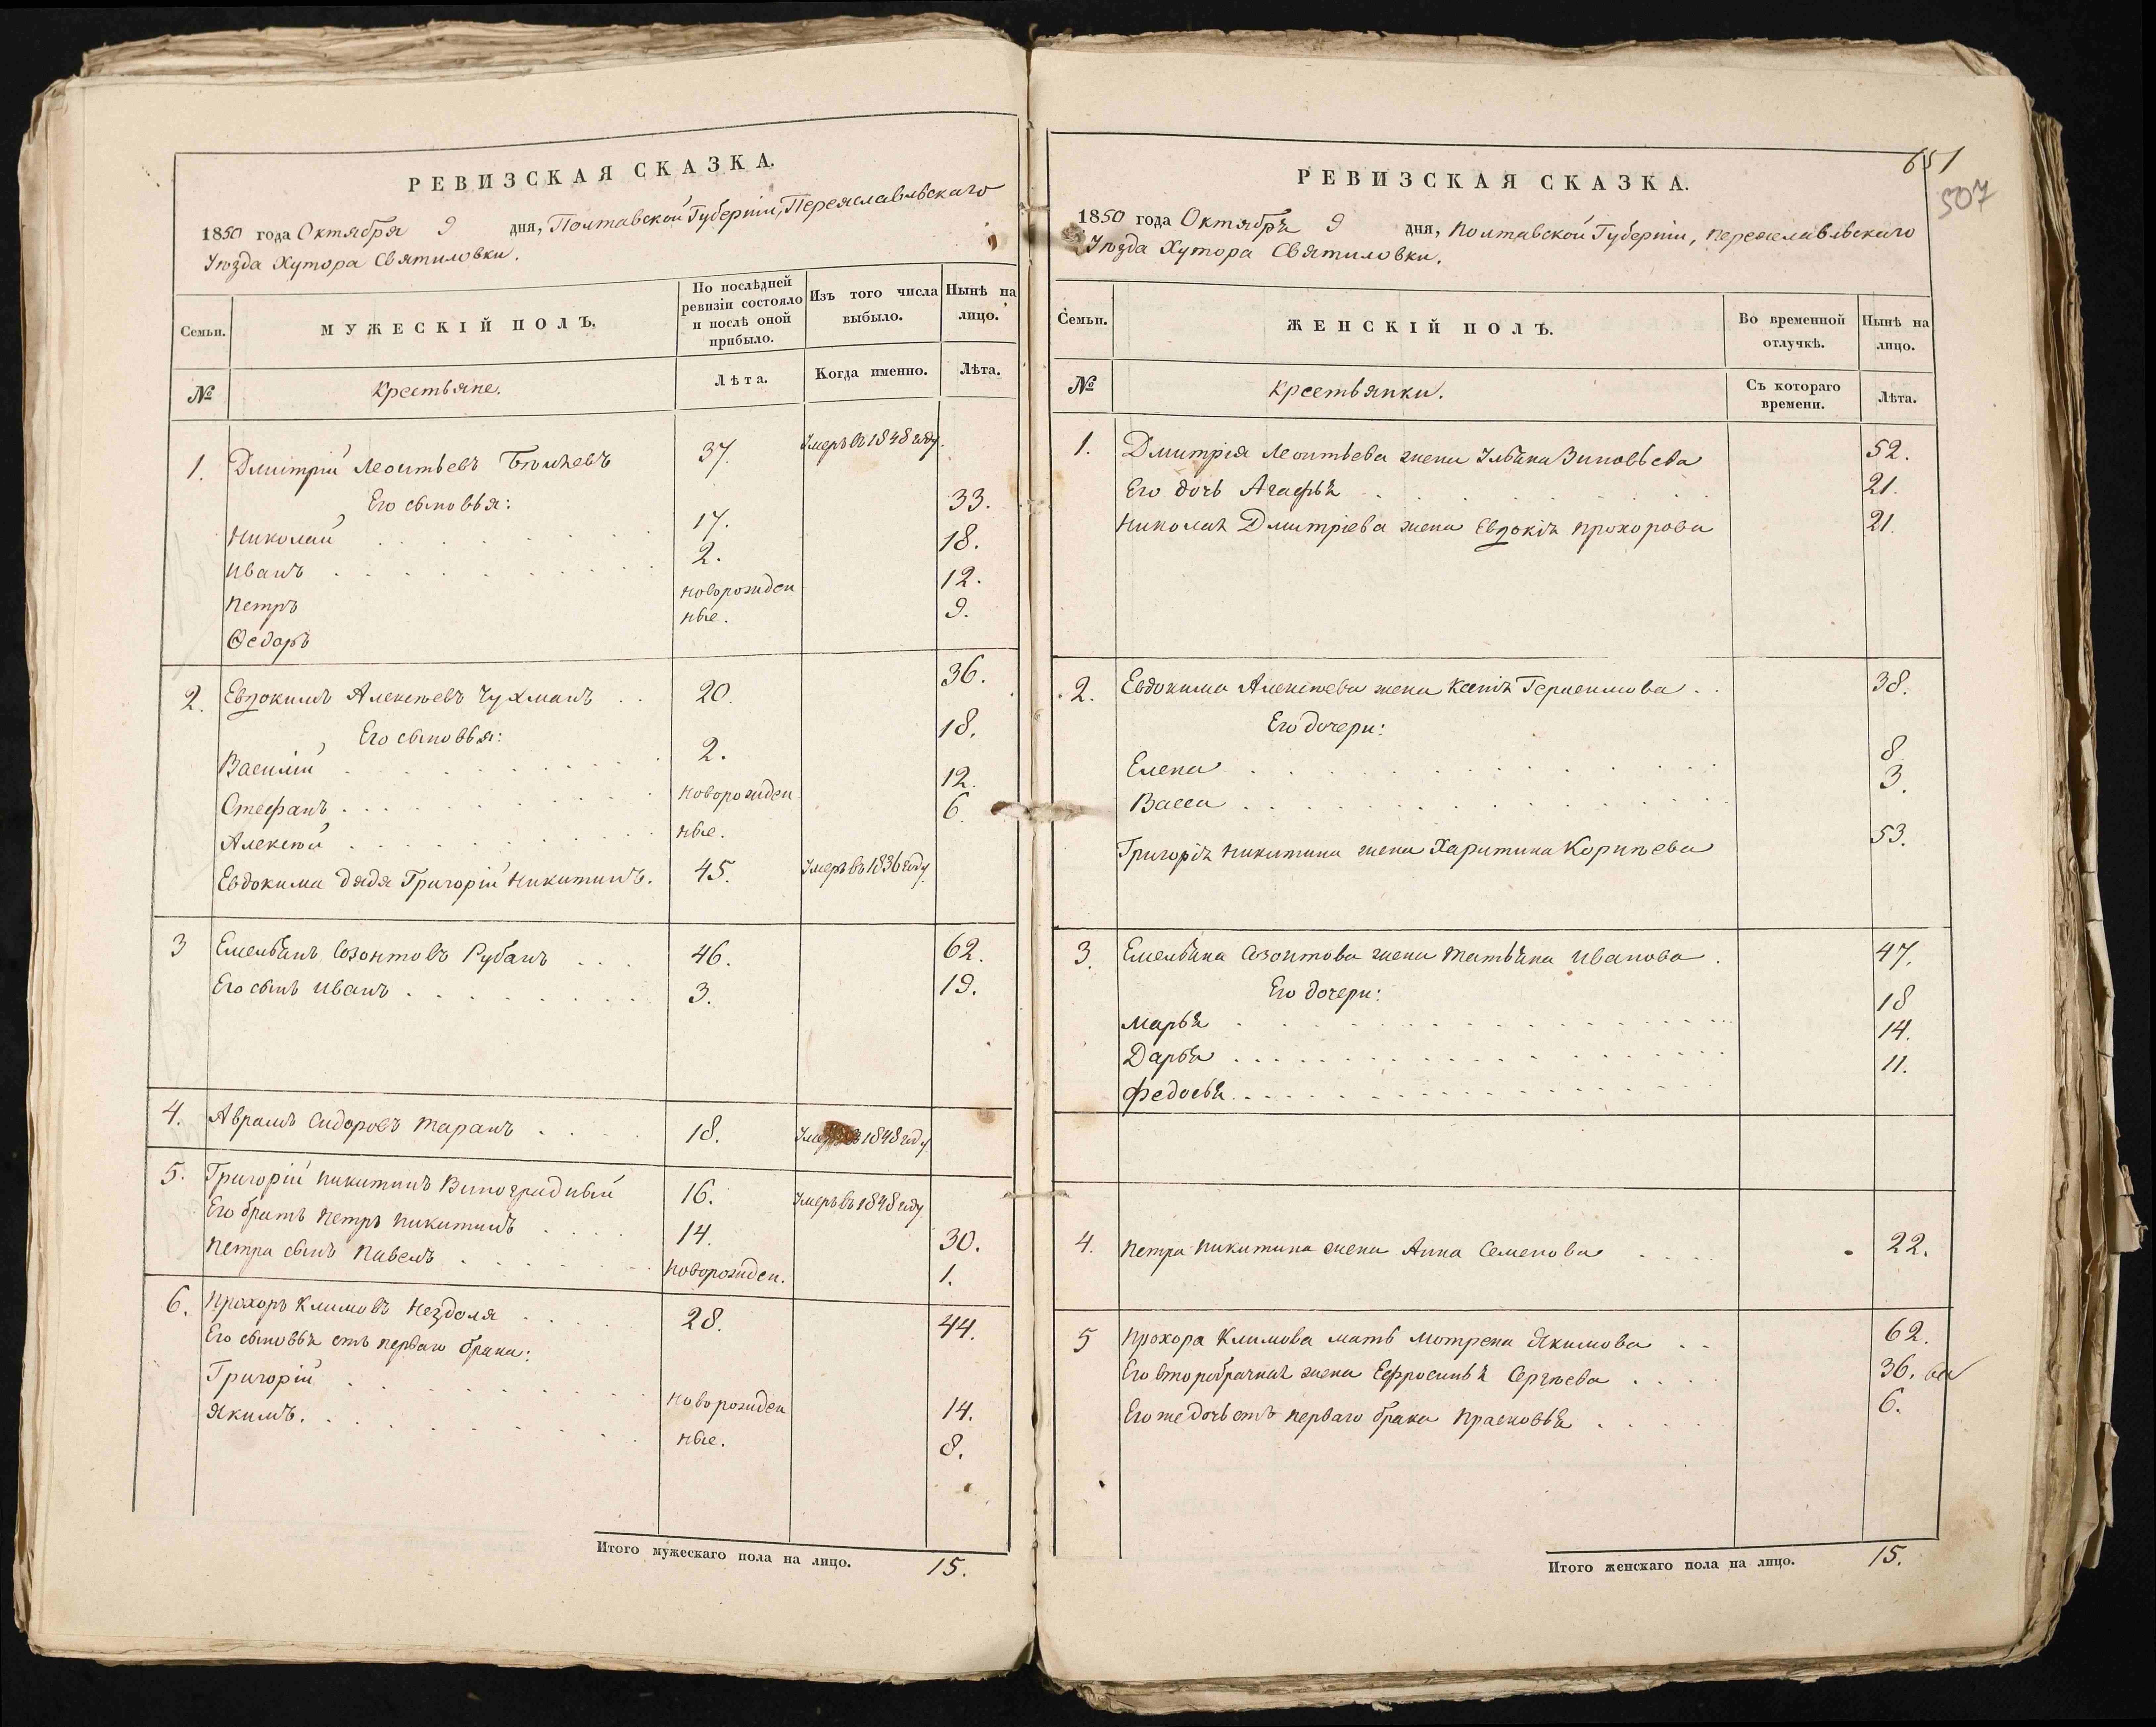 РЕВИЗСКАЯ СКАЗКА.
1850 года Октября 9 дня, Полтавской Губерніи, Переяславльскаго
Уѣзда Хутора Святиловки.
Семьи.
МУЖЕСКІЙ ПОЛЪ.
По послѣдней ревизіи состояло и послѣ оной прибыло.
Изъ того числа выбыло.
Нынѣ на лицо.
№
Крестьяне.
Лѣта.
Когда именно.
Лѣта.
1. Дмитрій Леонтьевъ 37. Умеръ въ 1848 году.
Его сыновья:
Николай 17. 33.
Иванъ 2. 18.
Петръ новорожден 12.
Ѳедоръ ные. 9.
2. Евдокимъ Алексѣевъ Чухманъ 20. 36.
Его сыновья:
Василій 2. 18.
Стефанъ новорожден 12.
Алексѣй ные. 6
Евдокима дядя Григорій Никитинъ. 45. Умеръ въ 1836 году
3 Емельянъ Созонтовъ Рубанъ 46. 62.
Его сынъ Иванъ 3. 19.
4. Аврамъ Сидоровъ Таранъ 18. Умеръ въ 1848 году
5. Григорій Никитинъ Виноградный 16. Умеръ въ 1848 году
Его братъ Петръ Никитинъ 14. 30.
Петра сынъ Павелъ новорожден. 1.
6. Прохоръ Климовъ Нездоля 28. 44.
Его сыновья отъ перваго брака:
Григорій новорожден 14.
Якимъ. ные. 8.
Итого мужескаго пола на лицо. 15.
651
307
РЕВИЗСКАЯ СКАЗКА.
1850 года Октября 9 дня, Полтавской Губерніи, Переяславльскаго
Уѣзда Хутора Святиловки.
Семьи.
ЖЕНСКІЙ ПОЛЪ.
Во временной отлучкѣ.
Нынѣ на лицо.
№
Крестьянки.
Съ котораго времени.
Лѣта.
1. Дмитрія Леонтьева жена Ульяна Зиновьева 52.
Его дочь Агафья 21.
Николая Дмитріева жена Евдокія Прохорова 21.
2. Евдокима Алексѣева жена Ксенія Герасимова 38.
Его дочери:
Елена 8
Васса 3.
Григорія Никитина жена Харитина Корнѣева 53.
3. Емельяна Созонтова жена Татьяна Иванова 47.
Его дочери:
Марья 18
Дарья 14.
Федосья 11.
4. Петра Никитина жена Анна Семенова 22.
5 Прохора Климова мать Мотрена Якимова 62.
Его второбрачная жена Ефросинья Сергѣева 36.
Его же дочь отъ перваго брака Прасковья 6.
Итого женскаго пола на лицо. 15.